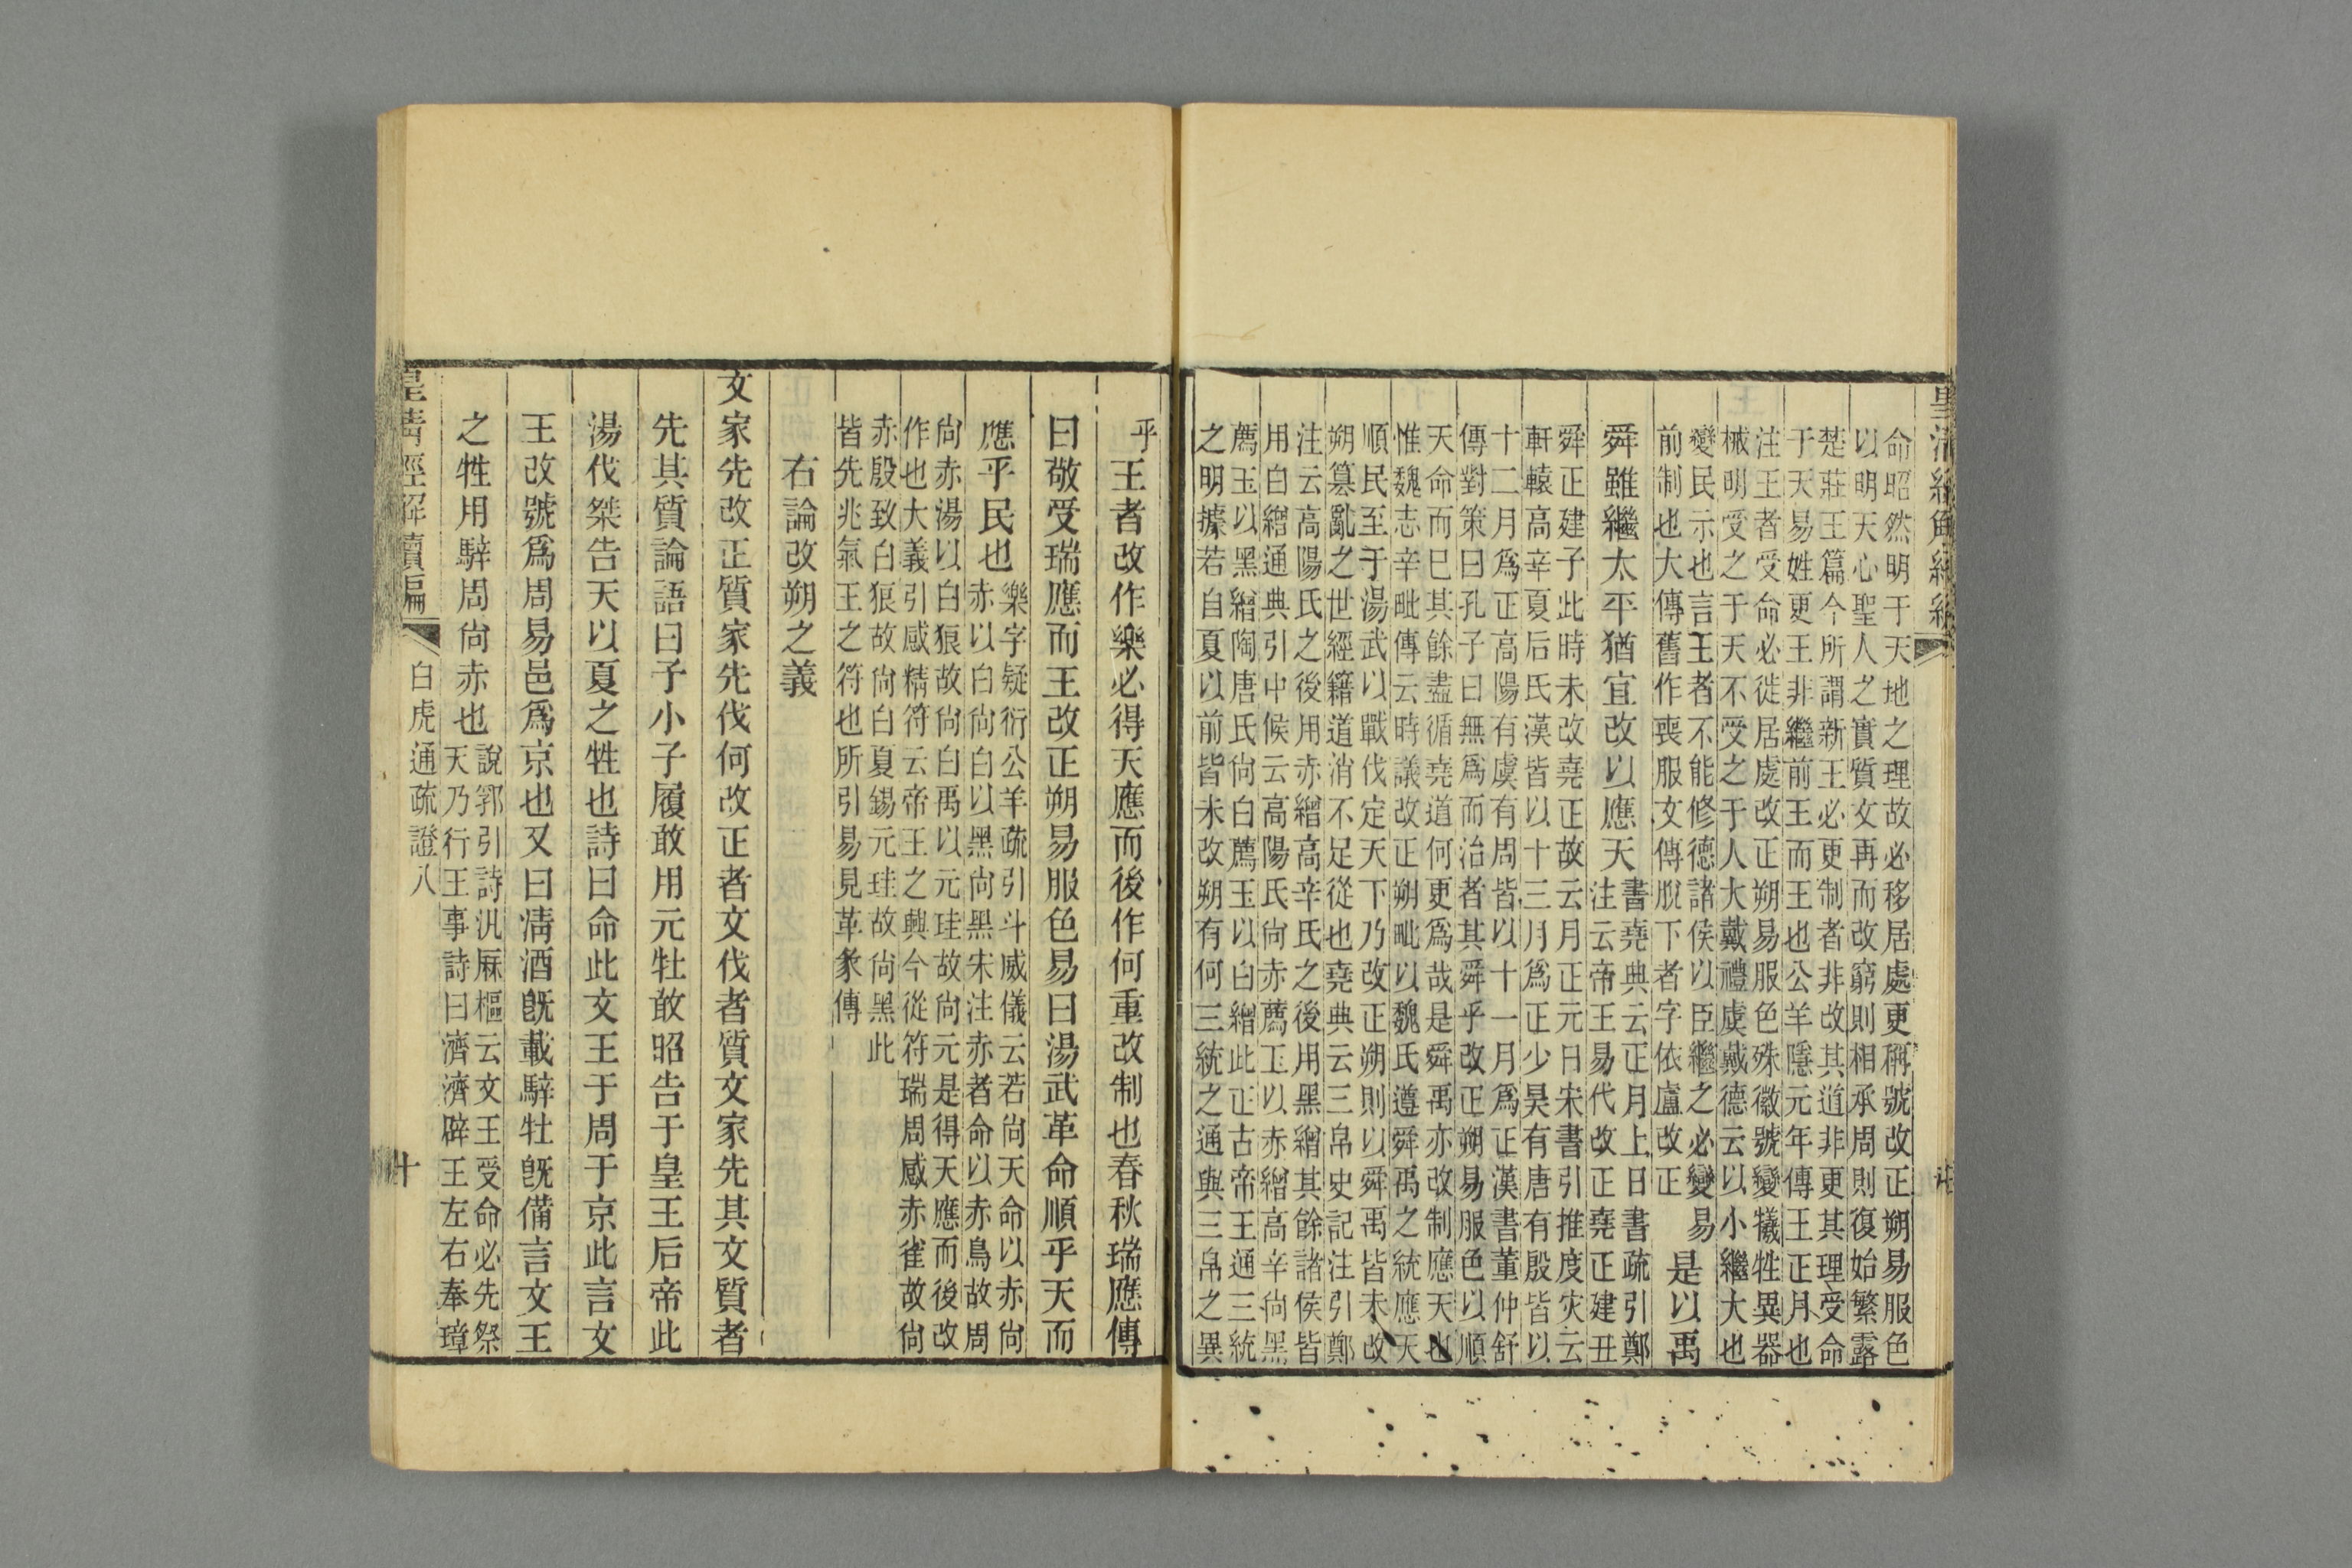 命昭然明于天地之理故必移居處更稱號改正朔易服色
以明天心聖人之實質文再而改窮則相承周則復始繁露
楚莊王篇今所謂新王必更制者非改其道非更其理受命
于天易姓更王非繼前王而王也公羊隱元年傳王正月也
注王者受命必徙居處改正朔易服色殊徽號變犧牲異器
械明受之于天不受之于人大戴禮虞戴德云以小繼大也
變民示也言王者不能修德諸侯以臣繼之必變易
前制也大傳舊作喪服文傳脫下者字依盧改正
是以禹
舜雖繼太平猶宜改以應天
書堯典云正月上日書疏引鄭
注云帝王易代改正堯正建丑
舜正建子此時未改堯正故云月正元日宋書引推度灾云
軒轅高辛夏后氏漢皆以十三月爲正少昊有唐有殷皆以
十二月爲正高陽有虞有周皆以十一月爲正漢書董仲舒
傳對策曰孔子曰無爲而治者其舜乎改正朔易服色以順
天命而已其餘盡循堯道何更爲哉是舜禹亦改制應天也
惟魏志辛毗傳云時議改正朔毗以魏氏遵舜禹之統應天
順民至于湯武以戰伐定天下乃改正朔則以舜禹皆未改
朔篡亂之世經籍道消不足從也堯典云三帛史記注引鄭
注云高陽氏之後用赤繒高辛氏之後用黑繒其餘諸侯皆
用白繒通典引中候云高陽氏尙赤薦玉以赤繒高辛尙黑
薦玉以黑繒陶唐氏尙白薦玉以白繒此正古帝王通三統
之明據若自夏以前皆未改朔有何三統之通與三帛之異
乎
王者改作樂必得天應而後作何重改制也春秋瑞應傳
曰敬受瑞應而王改正朔易服色易曰湯武革命順乎天而
應乎民也
樂字疑衍公羊疏引斗威儀云若尙天命以赤尙
赤以白尙白以黑尙黑宋注赤者命以赤鳥故周
尙赤湯以白狼故尙白禹以元珪故尙元是得天應而後改
作也大義引感精符云帝王之興今從符瑞周感赤雀故尙
赤殷致白狼故尙白夏錫元珪故尙黑此
皆先兆氣王之符也所引易見革彖傳
右論改朔之義
文家先改正質家先伐何改正者文伐者質文家先其文質者
先其質論語曰予小子履敢用元牡敢昭告于皇王后帝此
湯伐桀告天以夏之牲也詩曰命此文王于周于京此言文
王改號爲周易邑爲京也又曰淸酒旣載騂牡旣備言文王
之牲用騂周尙赤也
說郛引詩汎厤樞云文王受命必先祭
天乃行王事詩曰濟濟辟王左右奉璋
皇清經解續編
白虎通疏證八
十